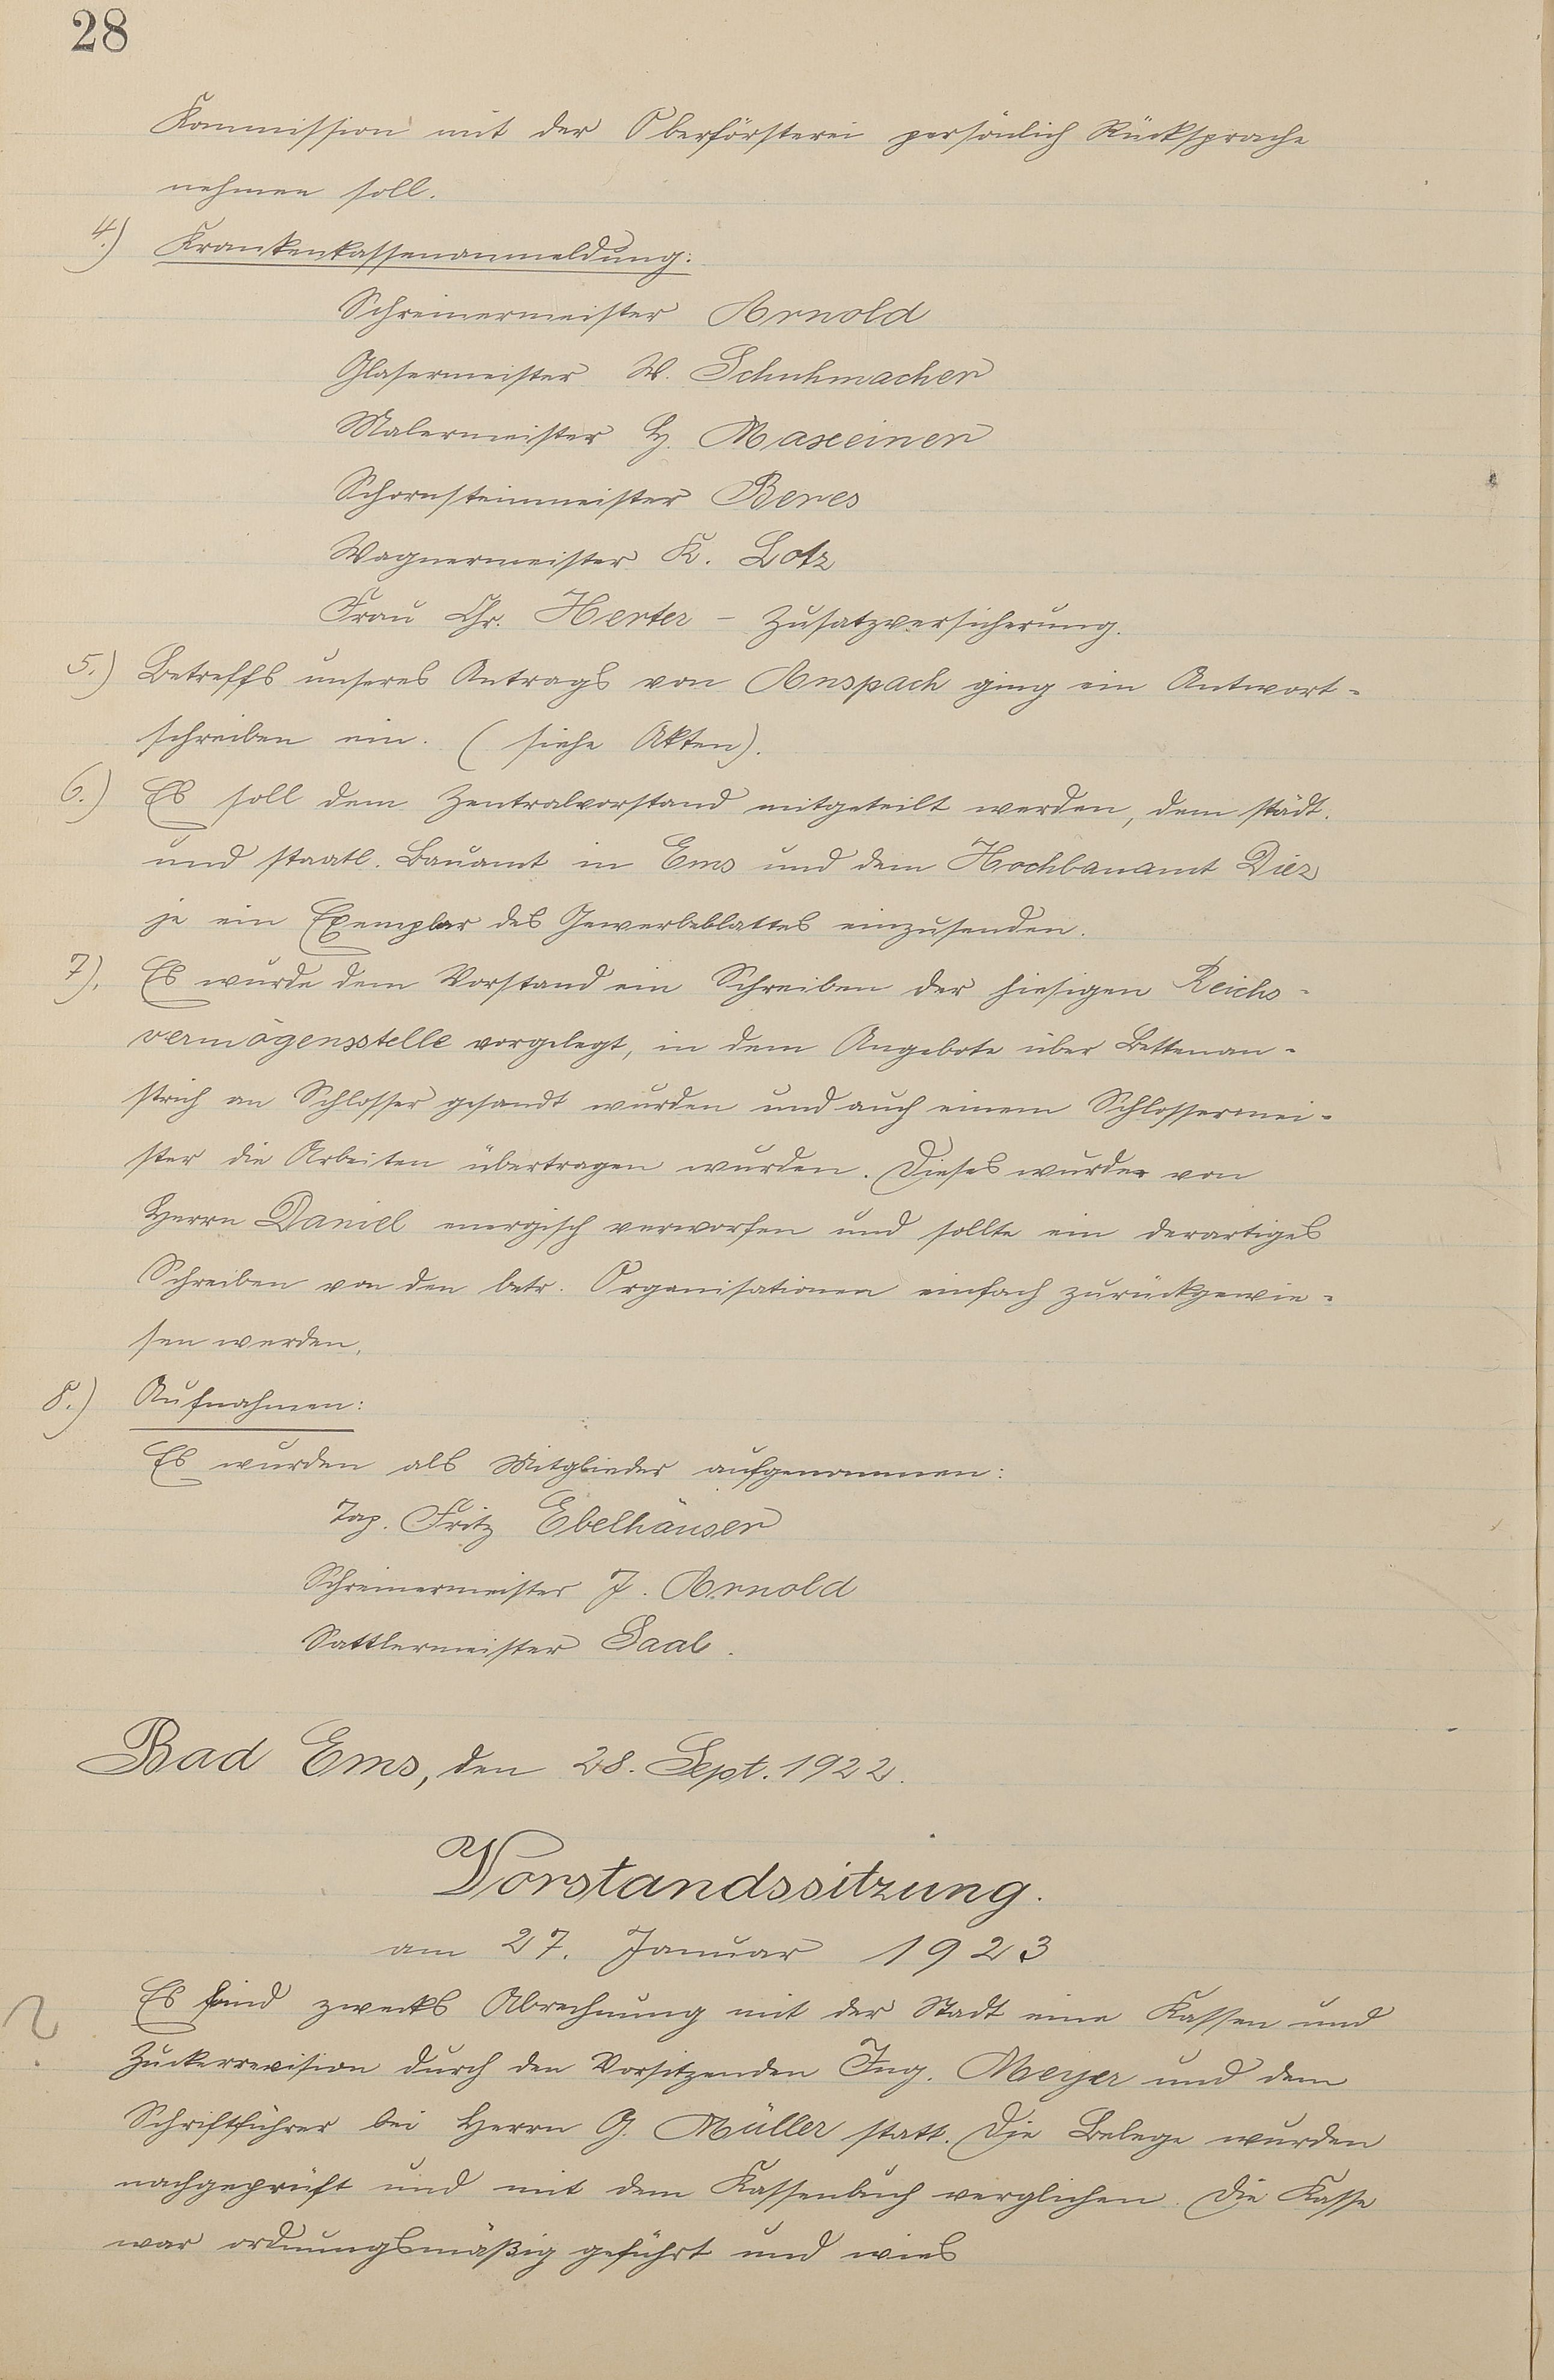 28
Kommission mit der Oberförsterei persönlich Rücksprache
nehmen soll.
4.) Krankenkassenanmeldung:
Schreinermeister Arnold
Glasermeister W. Schuhmacher
Malermeister H. Maxeiner
Schornsteinmeister Beres
Wagnermeister K. Lotz
Frau Chr. Herter - Zusatzversicherung.
5.) Betreffs unseres Antrags von Anspach ging ein Antwort-
schreiben ein. (siehe Akten).
6.) Es soll dem Zentralvorstand mitgeteilt werden, dem städt.
und staatl. Bauamt in Ems und dem Hochbauamt Diez
je ein Exemplar des Gewerbeblattes einzusenden.
7). Es wurde dem Vorstand ein Schreiben der hiesigen Reichs-
vermögensstelle vorgelegt, in dem Angebote über Bettenan-
strich an Schlosser gesandt wurden und auch einem Schlossermei-
ster die Arbeiten übertragen wurden. Dieses wurde von
Herrn Daniel energisch verworfen und sollte ein derartiges
Schreiben von den betr. Organisationen einfach zurückgewie-
sen werden.
8.) Aufnahmen:
Es wurden als Mitglieder aufgenommen:
Tap. Fritz Ebelhäuser
Schreinermeister J. Arnold
Sattlermeister Saal.
Bad Ems, den 28. Sept. 1922.
Vorstandssitzung.
am 27. Januar 1923
? Es fand zwecks Abrechnung mit der Stadt eine Kassen und
Zuckerrevision durch den Vorsitzenden Ing. Meyer und dem
Schriftführer bei Herrn G. Müller statt. Die Belege wurden
nachgeprüft und mit dem Kassenbuch verglichen. Die Kasse
war ordnungsmäßig geführt und wies